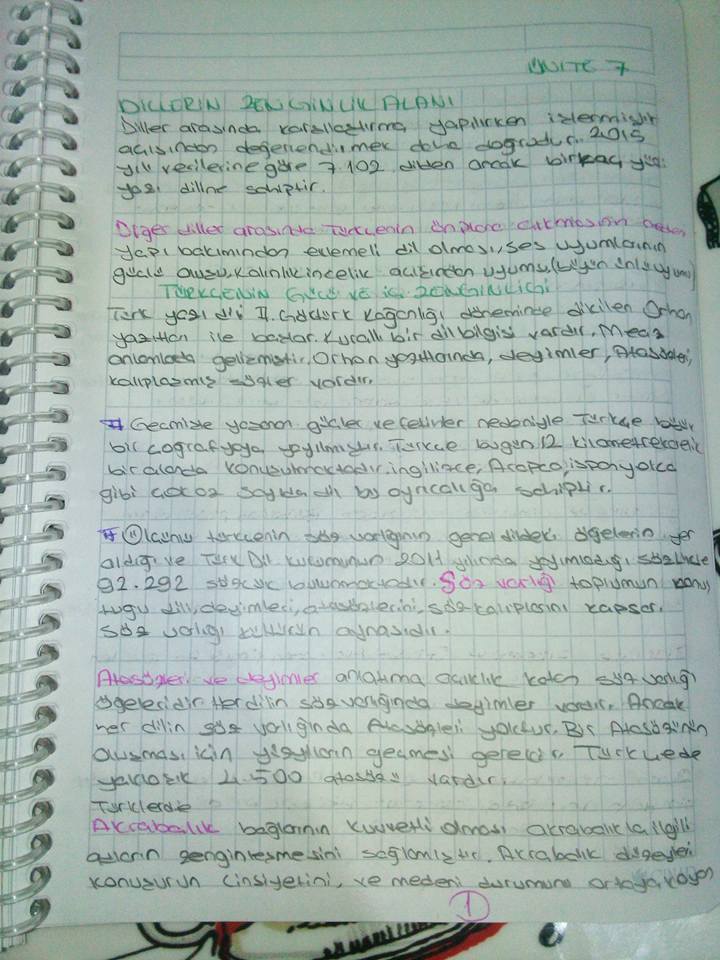 ÜNİTE 7
DİLLERİN ZENGİNLİK ALANI
Diller arasında karşılaştırma yapılırken işlenmişlik
açısından değerlendirmek daha doğrudur. 2015
yılı verilerine göre 7.102 dilden ancak birkaç yüzü
yazı diline sahiptir.
Diğer diller arasında Türkçenin ön plana çıkmasının neden
yapı bakımından eklemeli dil olması, ses uyumlarının
güçlü oluşu, kalınlık incelik açısından uyumu, (büyük ünlü uyumu)
TÜRKÇENİN GÜCÜ VE İÇ ZENGİNLİĞİ
Türk yazı dili II. Göktürk Kağanlığı döneminde dikilen Orhon
yazıtları ile başlar. Kurallı bir dilbilgisi vardır. Mecaz
anlamlada gelişmiştir. Orhon yazıtlarında, deyimler, Atasözleri,
kalıplaşmış sözler vardır.
# Geçmişte yaşanan göçler ve fetihler nedeniyle Türkçe büyük
bir coğrafyaya yayılmıştır. Türkçe bugün 12 kilometrekarelik
bir alanda konuşulmaktadır. ingilizce, Arapça, ispanyolca
gibi çok az sayıda dil bu ayrıcalığa sahiptir.
# Ölçünlü türkçenin söz varlığının genel dildeki öğelerin yer
aldığı ve Türk Dil kurumunun 2011 yılında yayımladığı sözlükte
92.292 sözcük bulunmaktadır. Söz varlığı toplumun konuş
tuğu dili, deyimleri, atasözlerini, söz kalıplarını kapsar.
Söz varlığı kültürün aynasıdır.
Atasözleri ve deyimler anlatıma açıklık katan söz varlığı
öğeleridir. Her dilin söz varlığında deyimler vardır. Ancak
her dilin söz varlığında Atasözleri yoktur. Bir Atasözünün
oluşması için yüzyılların geçmesi gerekir. Türkçede
yaklaşık 2.500 atasözü vardır.
Türklerde
Akrabalık bağlarının kuvvetli olması akrabalıkla ilgili
adların zenginleşmesini sağlamıştır. Akrabalık düzeyleri
konuşurun cinsiyetini, ve medeni durumunu ortaya koyan
1